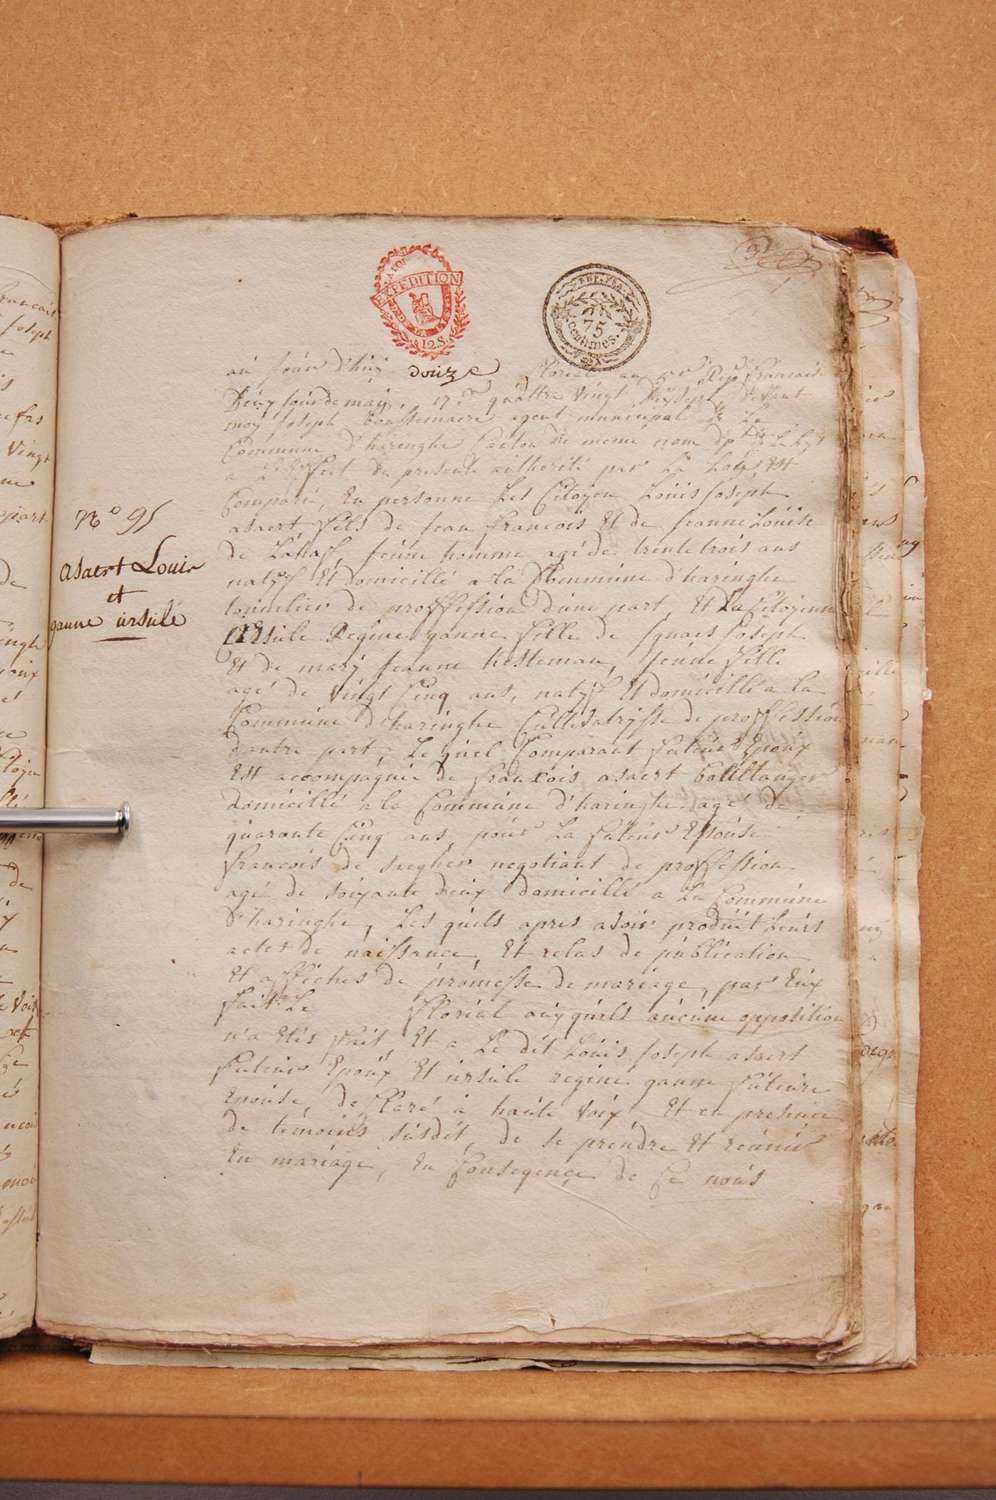 EXPEDITION
125
REP. FRA.
75
centimes.
au jour d'huy douze floreal an 5.e Rep. francais
Deux jour de maij, 17.e quattre vingt dix sept devant
moy Joseph agent municipal de La
Commune d'haringhe Canton de meme nom
a L'effect du presente authorité par La Loy, Est
Comparu, En personne Les Citoyen Louis Joseph
asaert fils de jean francois Et de jeanne Louise
de jeune homme agé de trente trois ans
natyf Et domicillé a la Commune d'haringhe
tonnelier de proffession d'une part, Et La Citoyenne
Ursule Regine ganne fille de Ignaes Joseph
Et de mary jeanne Kesteman, jeune fille
agé de vingt Cinq ans, natyf Et domicillé a la
Commune d'haringhe Cultivatrysse de proffession
dautre part, Le quel Comparant futeur Epoux
Est accompagnié de francois asaert boullanger
domicillé a la Commune d'haringhe agé de
quarante Cinq ans, pour La futeur Epouse
francois de negotiant de proffession
agé de soixante deux domicillé a La Commune
D'haringhe, Les quels apres avoir produit Leurs
actes de naissance, Et relas de publication
Et affiches de promesse de mariage, par Eux
fait Le florial auquels aucune opposition
n'a Etés fait Et a Le dit Louis Joseph asaert
futeur Epoux Et ursule regine ganne futeure
Epouse, declaré a haute voix Et en presence
de temoins susdit, de se prendre Et reunir
En mariage, En Consegence de Ce nous
N.o 95
asaert Louis
et
ganne ursule